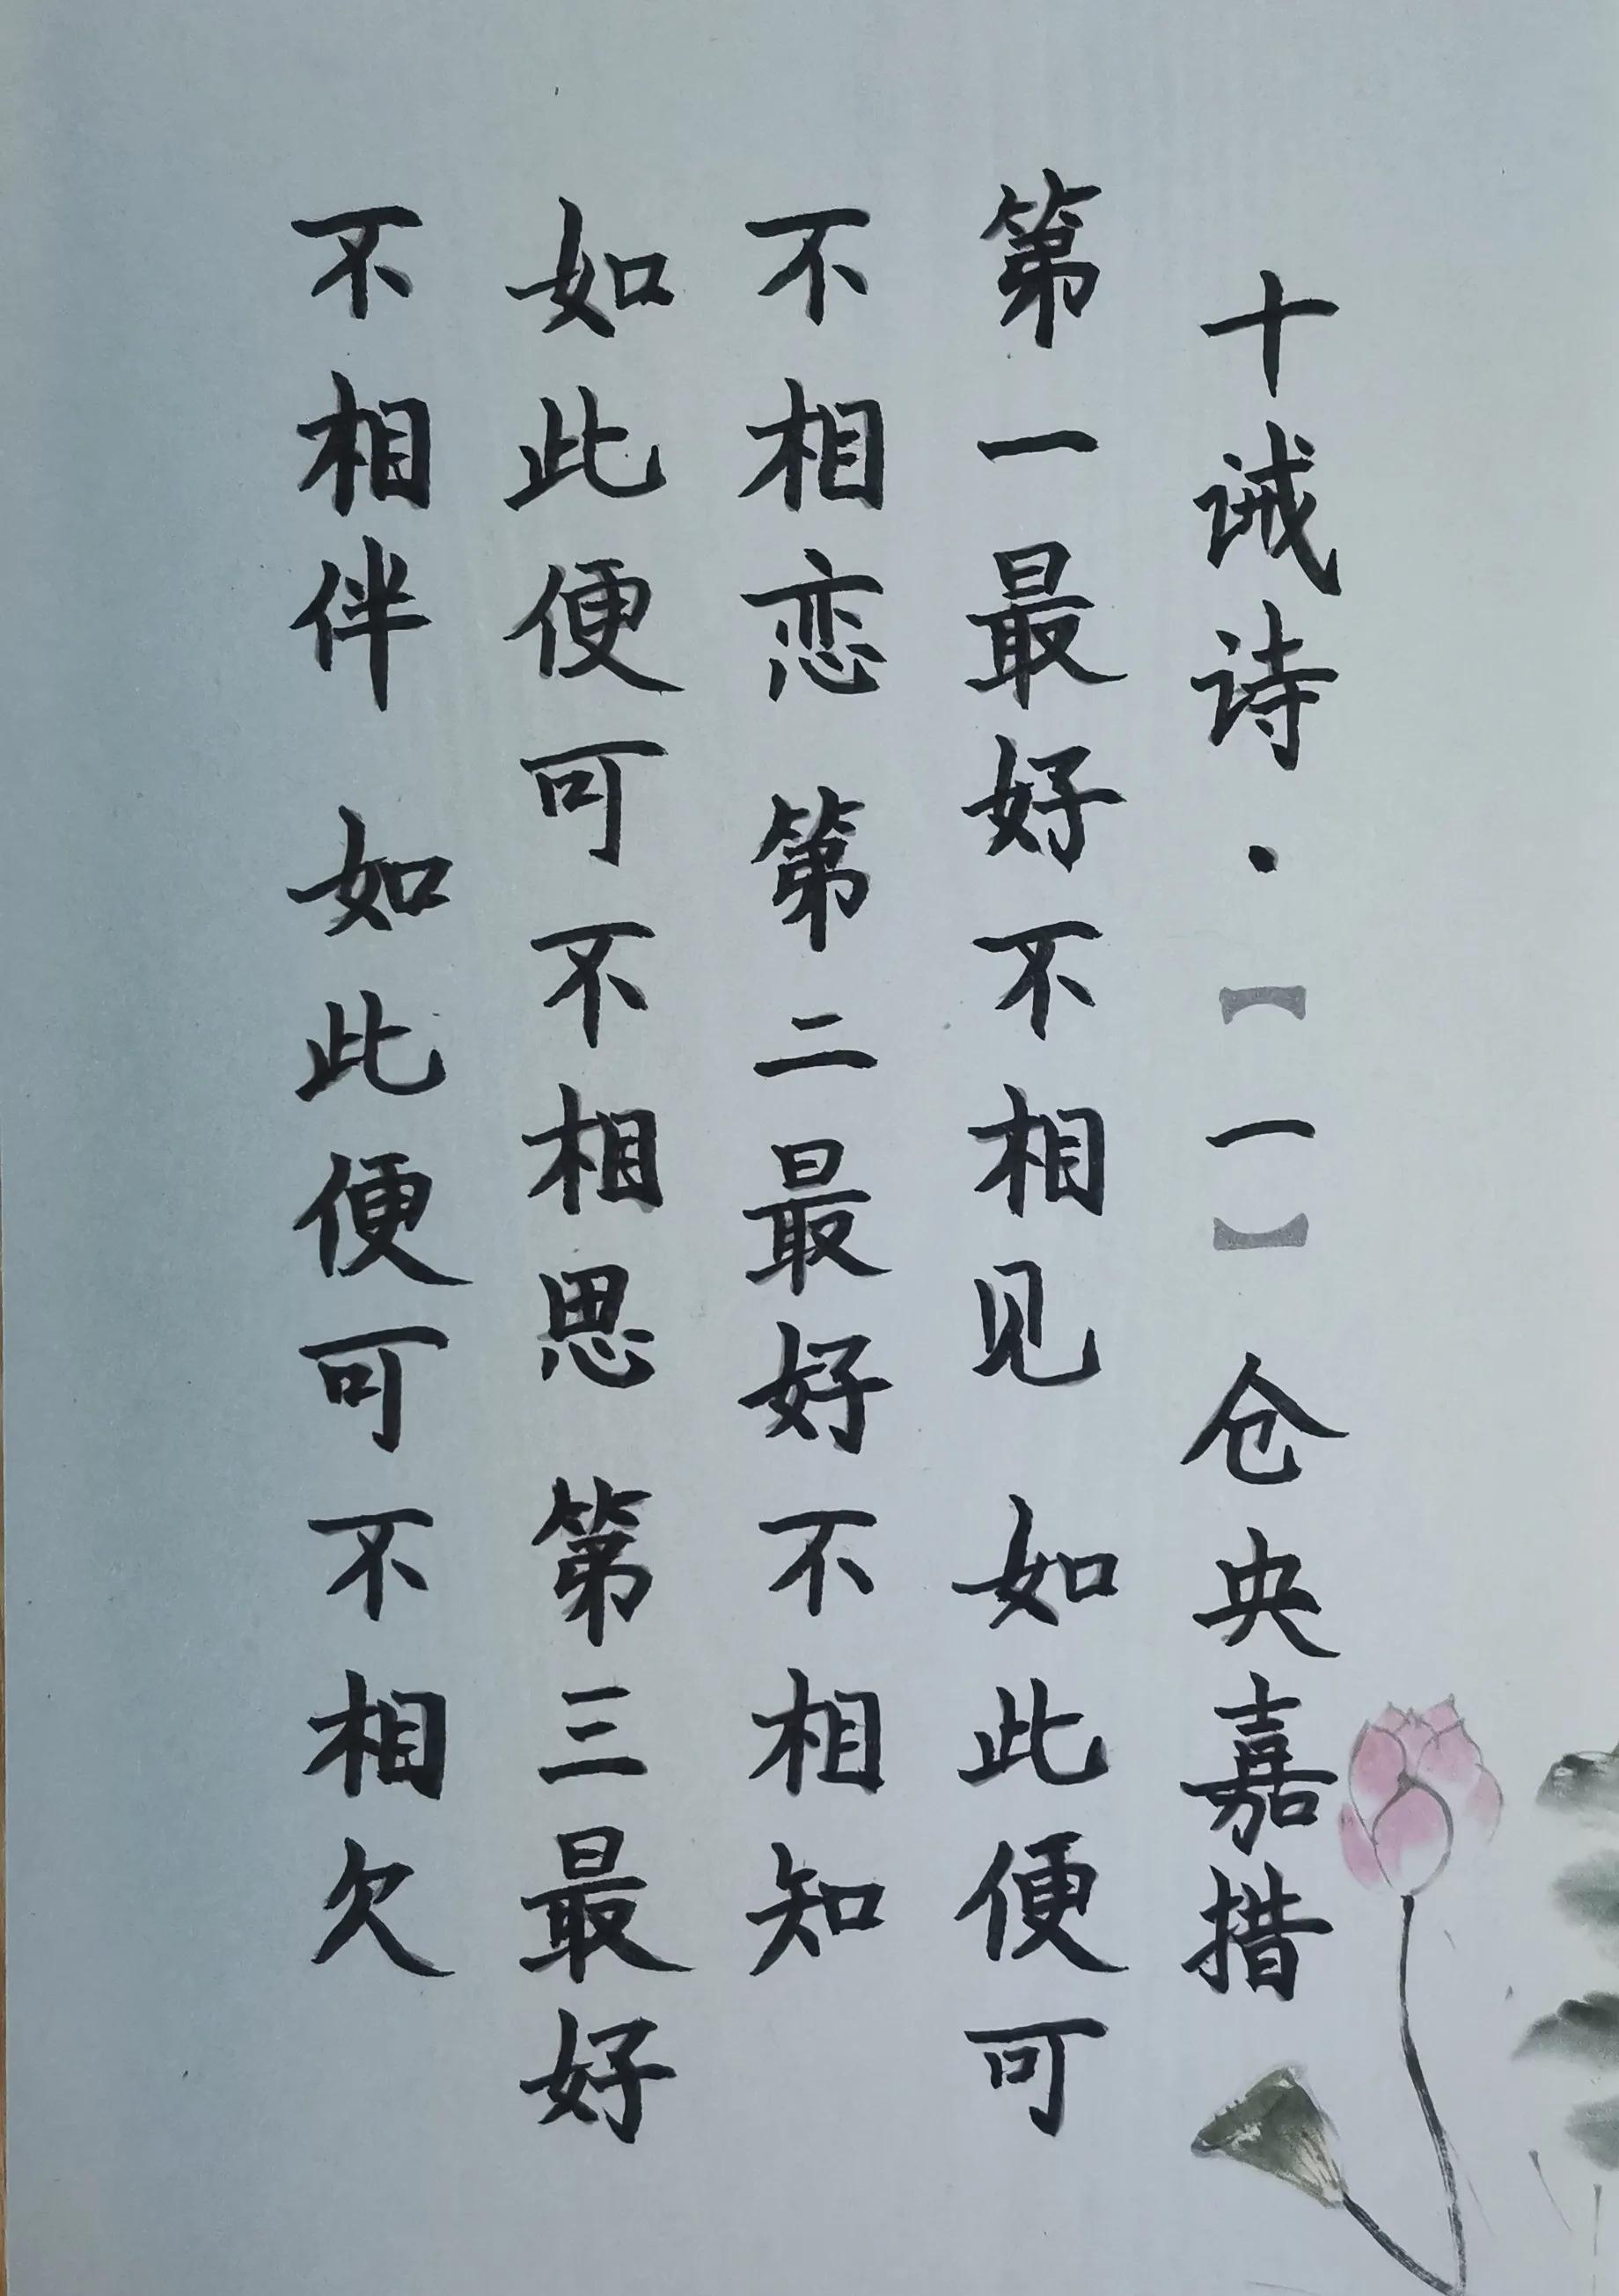 十诫诗·【一】仓央嘉措
第一最好不相见 如此便可
不相恋 第二最好不相知
如此便可不相思 第三最好
不相伴 如此便可不相欠